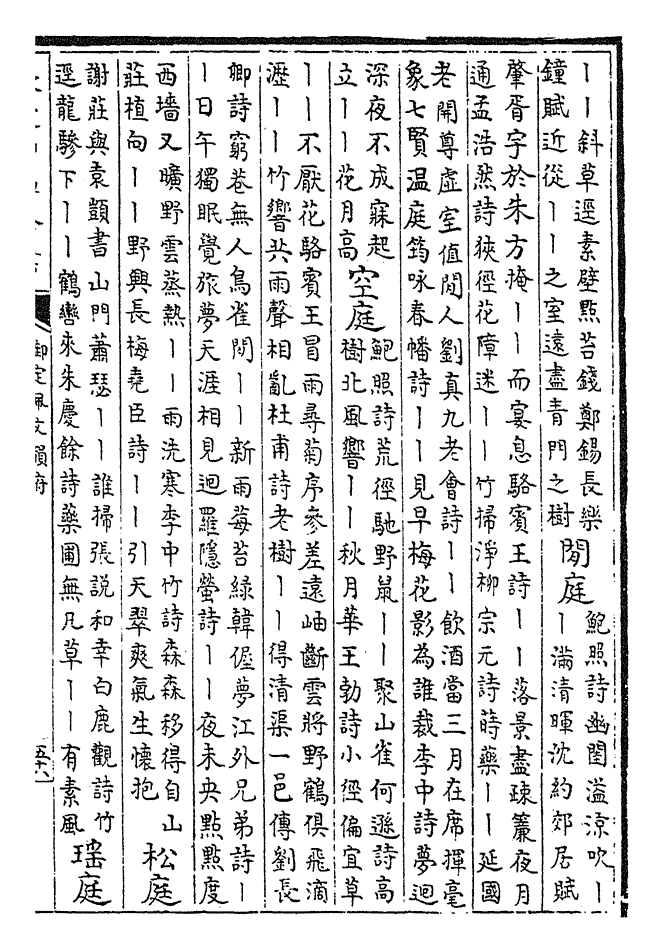 丨丨斜草逕素壁點苔錢鄭錫長樂
鐘賦近從丨丨之室遠盡青門之樹
閒庭
鮑照詩幽閨溢涼吹丨
丨滿清暉沈約郊居賦
肇胥宇於朱方掩丨丨而宴息駱賓王詩丨丨落景盡疎簾夜月
通孟浩然詩狹徑花障迷丨丨竹掃淨柳宗元詩蒔藥丨丨延國
老開尊虛室值閒人劉真九老會詩丨丨飲酒當三月在席揮毫
象七賢温庭筠咏春幡詩丨丨見早梅花影為誰裁李中詩夢迴
深夜不成寐起
立丨丨花月高
空庭
鮑照詩荒徑馳野鼠丨丨聚山雀何遜詩高
樹北風響丨丨秋月華王勃詩小徑偏宜草
丨丨不厭花駱賓王冒雨尋菊序參差遠岫斷雲將野鶴俱飛滴
瀝丨丨竹響共雨聲相亂杜甫詩老樹丨丨得清渠一邑傳劉長
卿詩窮巷無人鳥雀閒丨丨新雨莓苔綠韓偓夢江外兄弟詩丨
丨日午獨眠覺旅夢天涯相見迴羅隱螢詩丨丨夜未央點點度
西墻又曠野雲蒸熱丨丨雨洗寒李中竹詩森森移得自山
莊植向丨丨野興長梅堯臣詩丨丨引天翠爽氣生懷抱
松庭
謝莊與袁顗書山門蕭瑟丨丨誰掃張說和幸白鹿觀詩竹
逕龍驂下丨丨鶴轡來朱慶餘詩藥圃無凡草丨丨有素風
瑤庭
御定佩文韻府